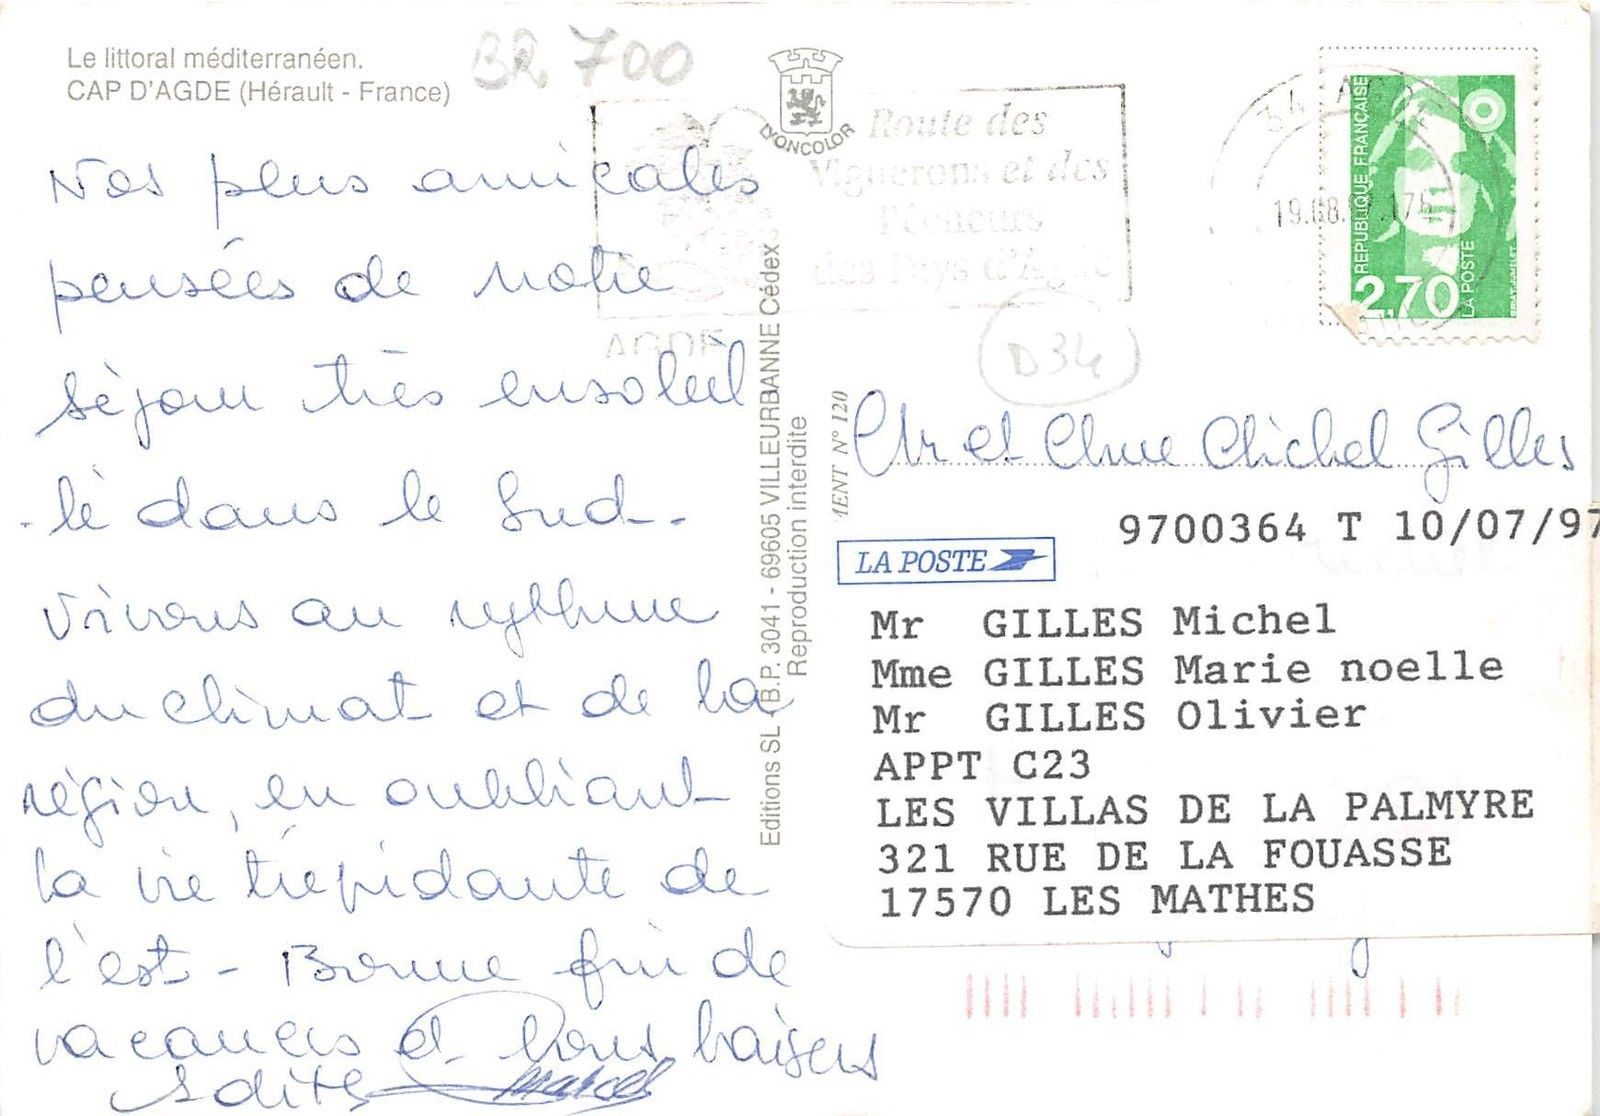 Le littoral méditerranéen.
CAP D'AGDE (Hérault - France)
BR 700
LYONCOLOR
Route des
Vignerons et des
Pêcheurs
des Pays d'Agde
AGDE
34 AGDE
19.08.
REPUBLIQUE FRANÇAISE
2,70
LA POSTE
D34
Nos plus amicales
pensées de notre
séjour très ensoleil
-lé dans le Sud-.
Vivons au rythme
du climat et de la
région, en oubliant
la vie trépidante de
l'est - Bonne fin de
vacances et bons baisers
Edith Marcel
Editions SL - B.P. 3041 - 69605 VILLEURBANNE Cédex
Reproduction interdite
MENT N° 120
Mr et Mme Michel Gilles
9700364 T 10/07/97
LA POSTE
Mr GILLES Michel
Mme GILLES Marie noelle
Mr GILLES Olivier
APPT C23
LES VILLAS DE LA PALMYRE
321 RUE DE LA FOUASSE
17570 LES MATHES